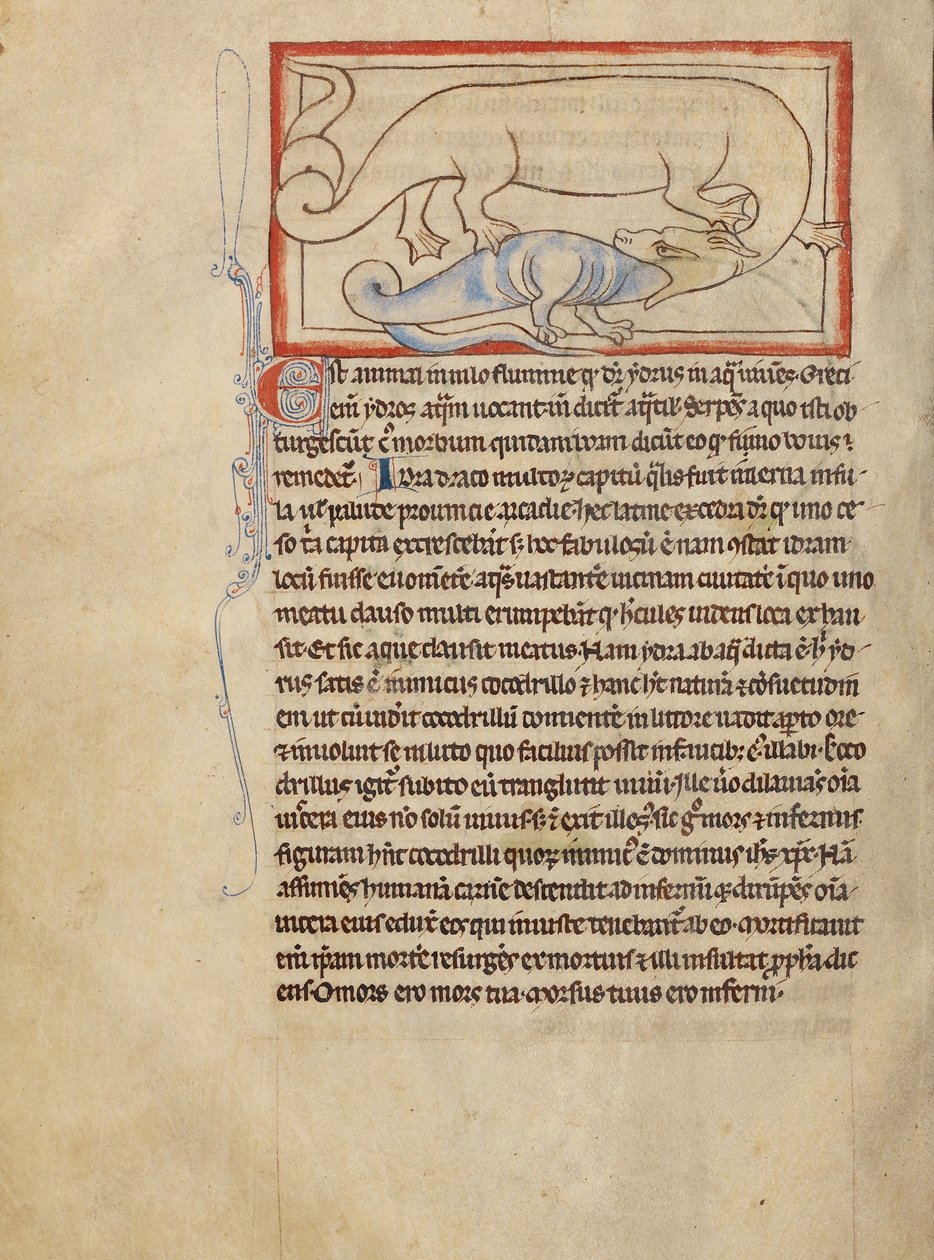 Est animal in nilo flumine q̄ dr̄ ydrus in aq̄ uiuēs. Greci
em̄ ydros aq̄m uocant. in̄ dicit᷑ aq̄til' serpēs a quo icti ob
turgescūt c᷑ morbum quidam ... dicūt eo q̇ fimo bouis ⁊
remedet᷑. Idra draco multoꝝ capitū q̄lis fuit in lerna insu
la ul' palude prouincie arcadie. hec latine excedra dr̄ q̇ uno ce
so t̄a capita excrescebāt s; hoc fabulosū ē nam ꝯstat idram
locū fuisse euomētē aq̄s uastantē uicinam ciuitatē ī quo uno
meatu clauso multi erumpebāt q̇ h̄cules uidens loca exhau
sit. Et sic aque clausit meatus. Nam ydra ab aq̄ dicta ē. h' yd
rus satis ē inimicus cocodrillo ⁊ hanc h̄t naturā ⁊ cōsuetudin
em ut cū uid'it cocodrillū dormientē in littore uadit apto ore
⁊ inuoluit se in luto quo facilius possit in faucib; ei᷑ illabi. Coco
drillus igit᷑ subito eū transglutit uiuū. Ille u̇o dilanıās oīa
uiscera eius nō solū uiuus s; ⁊ exit illesus. Sic g̊ mors ⁊ infernus
figuram hn̄t cocodrilli quoꝝ inimic᷑ ē dominus ih̄s xp̄c. Nā
assumēs humanā carnē descendit ad infernū ⁊ dirūpēs oīa
uiscera eius eduxˀ eos qui iniuste tenebant᷑ ab eo. Mortificauit
em̄ ip̄am mortē resurgēs ex mortuis ⁊ illi insultat ꝓph̄a dic
ens. O mors ero mors tua. morsus tuus ero inferni.